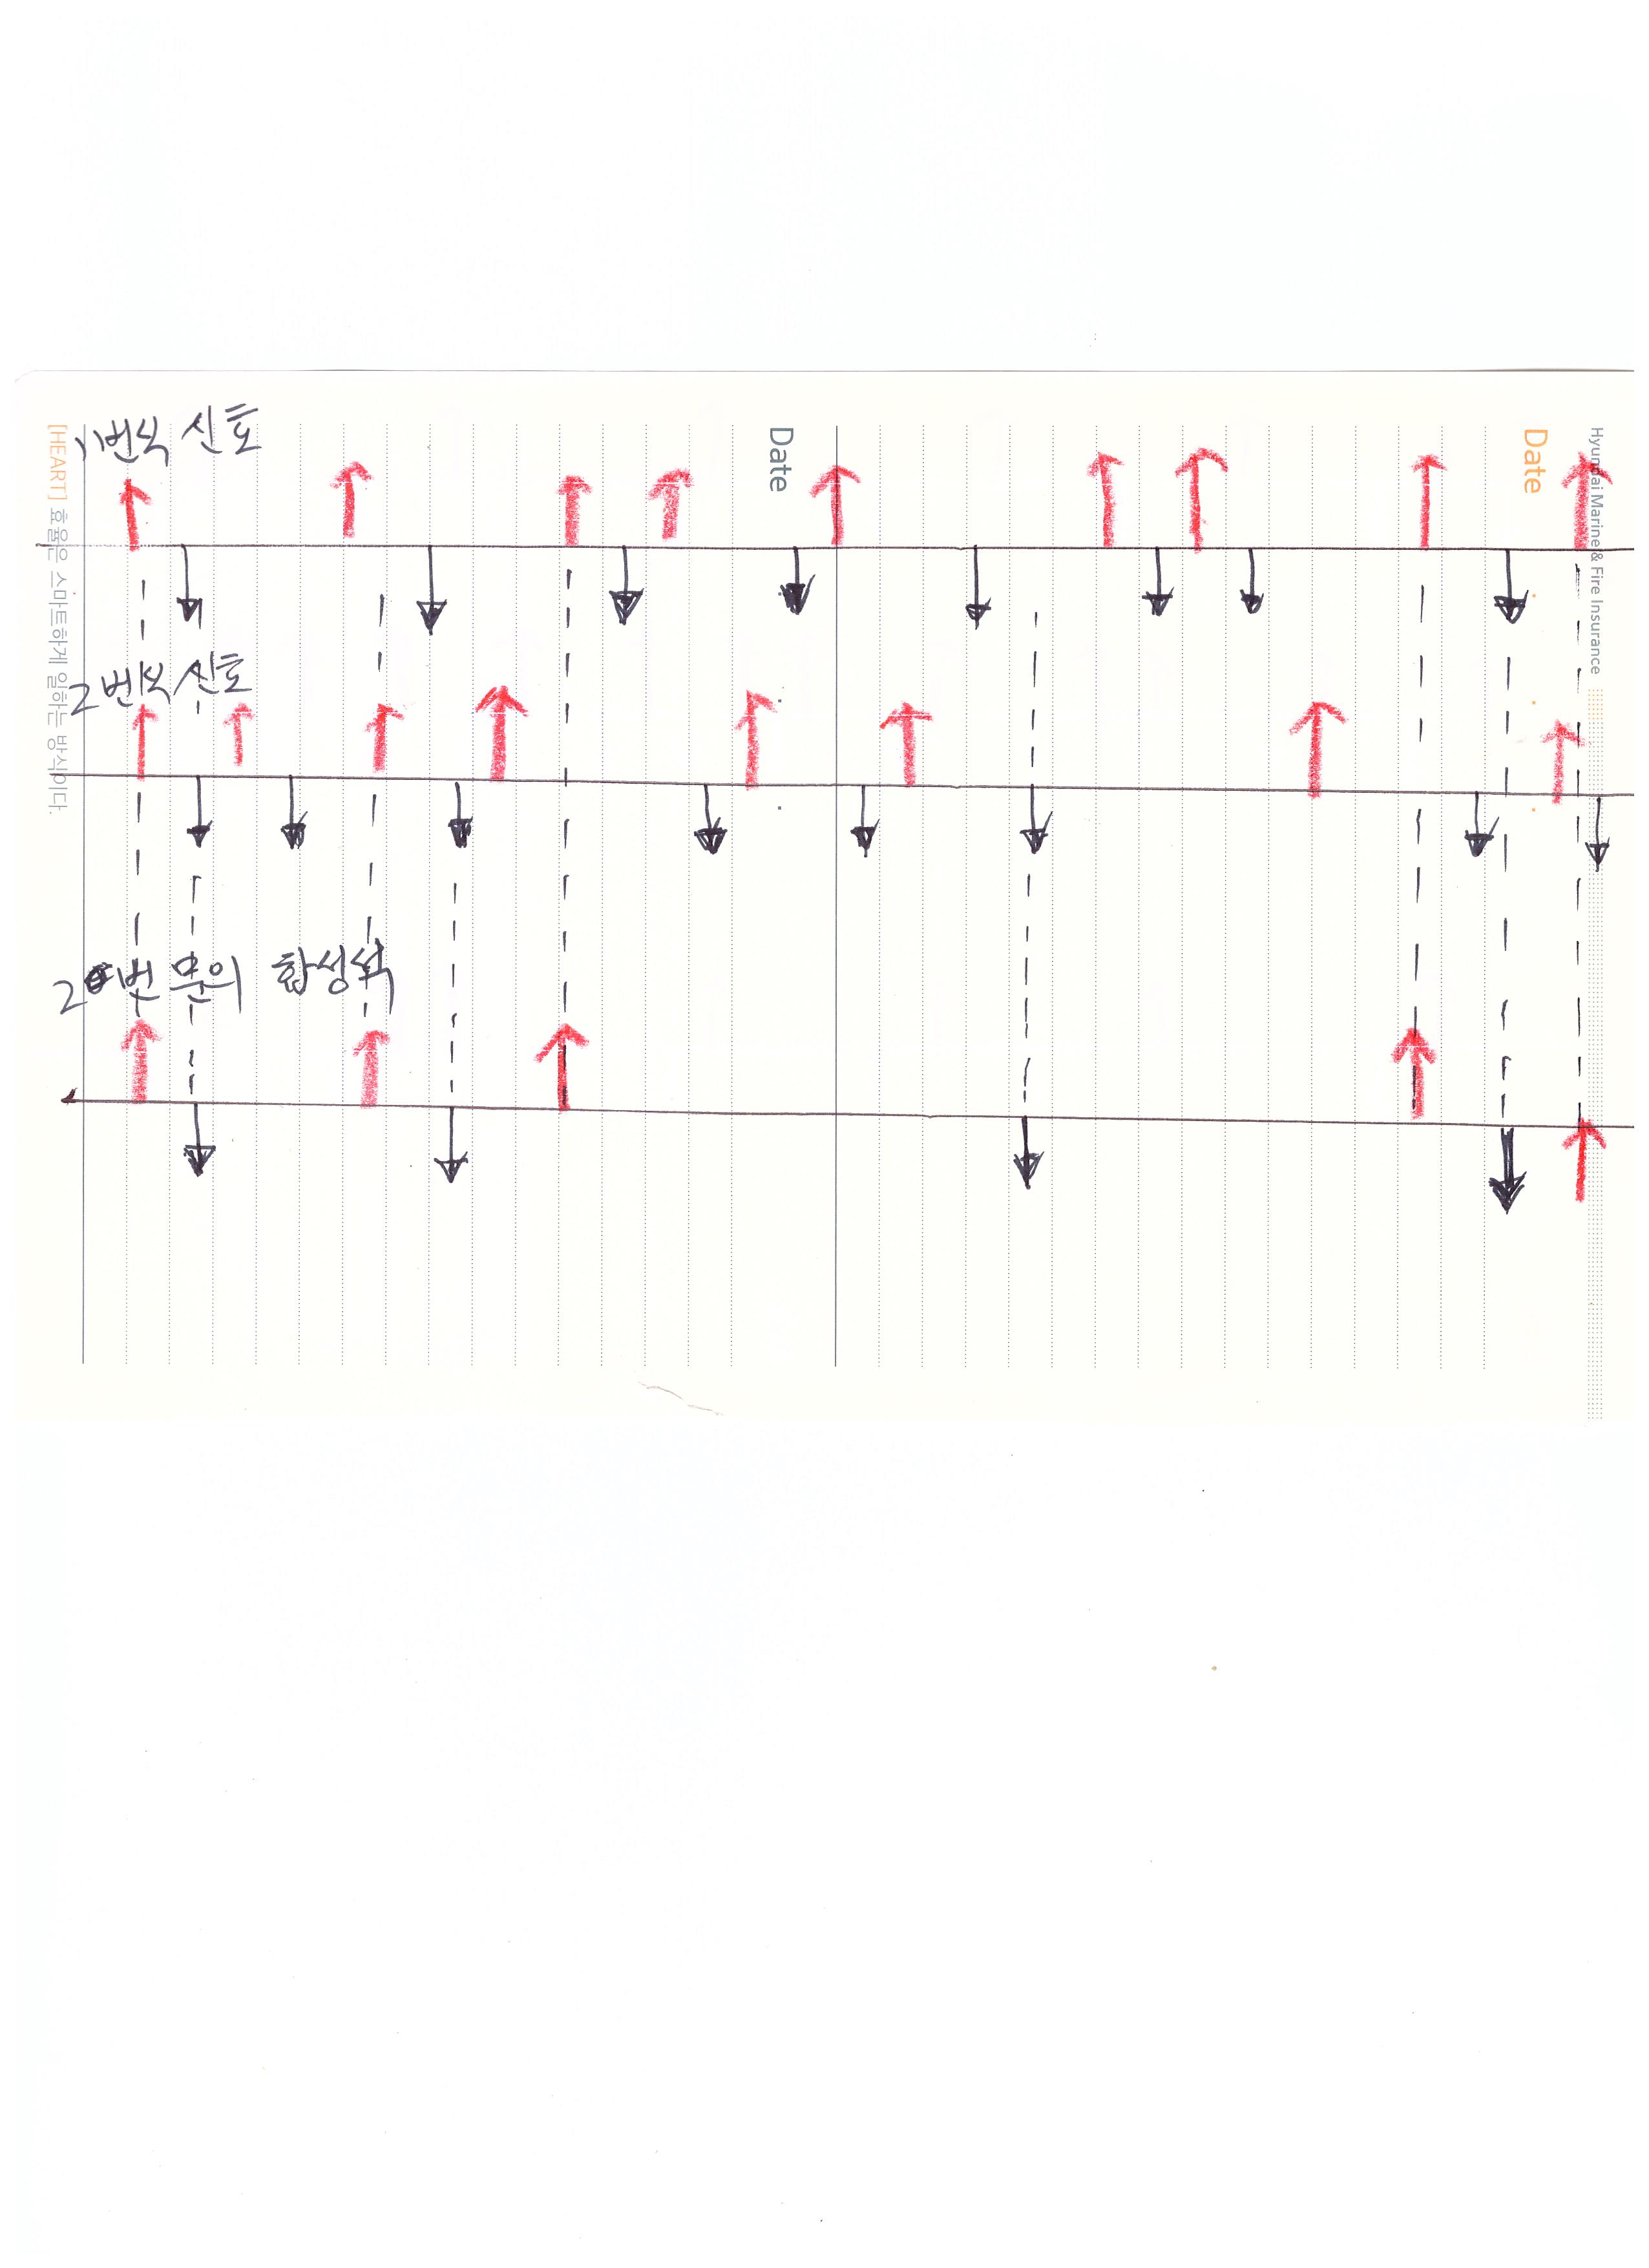 1번식 신호
Date
Date
Hyundai Marine & Fire Insurance
[HEART] 효율은 스마트하게 일하는 방식이다.
2번식 신호
2번 문의 합성식